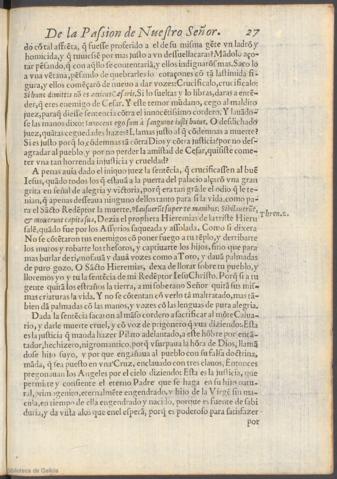 De la Passion de Nuestro Señor. 27
do cō tal affrēta, q̃ fuesse proferido a el de su misma gēte vn ladrō y
homicida, y q̃ muriesse por mas justo a vn dessuellacaras? Mādolo aço-
tar pēsando, q̃ con aq̃llo se contentariā, y ellos indignarōse mas. Saco lo
a vna vētana, pēsando de quebrarles lo coraçones cō tā lastimada fi-
gura, y ellos comēçarō de nueuo a dar vozes: Crucificalo, crucificalo:
Si hunc dimittis nō es amicus Cæsaris, Si lo sueltas y lo libras, daras a enten-
der, q̃ eres enemigo de Cesar. Y este temor mūdano, cego al maldito
juez, para q̃ diesse sentencia cōtra el innocētissimo cordero. Y lauādo-
se las manos dixo: Innocens ego sum à sanguine iusti huius. O desdichado
juez, quātas ceguedades hazes? Llamas justo al q̃ cōdemnas a muerte?
Si es justo porq̃ lo cōdemnas tā cōtra Dios y cōtra justicia? por no des-
agradar al pueblo, y por no perder la amistad de Cesar, quisiste come-
ter vna tan horrenda injusticia y crueldad?
A penas auia dado el iniquo juez la sentēcia, q̃ crucificassen al buē
Iesus, quādo todos los q̃ estauā a la puerta del palacio alçarō vna gran
grita en señal de alegria y victoria, porq̃ era tan grāde el odio q̃ le te-
nian, q̃ apenas desseaua ninguno dellos tanto para si la vida, como pa-
ra el Sācto Redēptor la muerte. Plauserūt super te manibus: Sibilauerūt,
& mouerunt capita sua, Dezia el propheta Hieremias de la triste Hieru
salē, quādo fue por los Assyrios saqueada y assolada. Como si dixera
Thren.2.
No se cōtētaron tus enemigos cō poner fuego a tu tēplo, y derribarte
los muros y robarte los thesoros, y captiuarte los hijos, sino que para
mas burlar de ti, mofauā y dauā vozes como a Toro, y dauā palmadas
de puro gozo. O Sācto Hieremias, dexa de llorar sobre tu pueblo, y
lloremos yo y tu la sentēcia de mi Redēptor Iesu Christo. Porq̃ si a tu
gente quirā los estraños la tierra, a mi soberano Señor quirā sus mis-
mas criaturas la vida. Y no se cōtentan cō verlo tā maltratado, mas tā-
bien dā palmadas cō las manos, y vozes cō las lenguas de pura alegria.
Dada la sentēcia sacaron al māso cordero a sacrificar al mōte Calua-
rio, y darle muerte cruel, y cō voz de prigonero q̃ yua diziendo: Esta
es la justicia q̃ manda hazer Pilato adelantado, a este hōbre por encā-
tador, hechizero, nigromantico, porq̃ vsurpaua la hōra de Dios, llamā
dose hijo suyo, y por que engañaua al pueblo con su falsa doctrina,
māda, q̃ sea puesto en vna Cruz, enclauado con tres clauos, Entonces
pregonauan los Angeles por el cielo diziendo: Esta es la justicia, que
permite y consiente el eterno Padre que se haga en su hijo natu-
ral, primogenito, eternalmēte engendrado, y hijo de la Virgē sin ma-
cula, en tiempo de ella engendrado y nacido, porque es fuente de sabi
duria, y da vista a los que en el esperā, porq̃ es poderoso para satisfazer
por
Biblioteca de Galicia